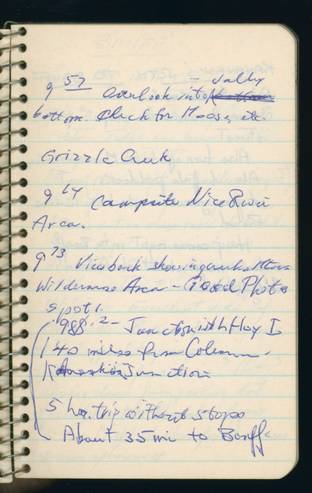 9 57 Overlook into - vally
bottom. Check for Moose, etc.
Grizzle Creek
9 64 Campsite Nice River
Area.
9 73 View back showing
Wilderness Area - Good Photo
spot.
988.2 - Junction with Hwy I
140 miles from
Junction
5 hr. trip without stops
About 35 mi to Banff.